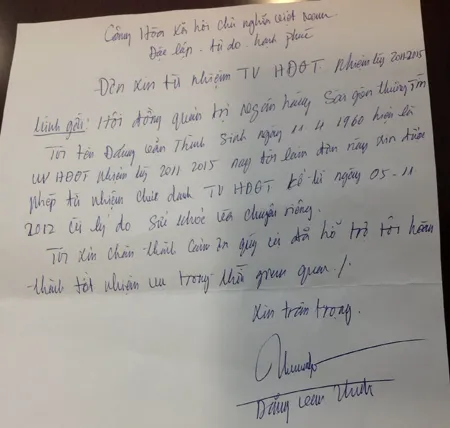 Cộng Hòa Xã hội chủ nghĩa Việt Nam
Độc lập - tự do - hạnh phúc
Đơn xin từ nhiệm TV HĐQT. Nhiệm kỳ 2011 2015
Kính gửi: Hội đồng quản trị ngân hàng Sài gòn thương Tín
Tôi tên Đặng Văn Thành Sinh ngày 11 4 1960 hiện là
UV HĐQT Nhiệm kỳ 2011 2015 nay tôi làm đơn này xin được
phép từ nhiệm chức danh TV HĐQT kể từ ngày 05-11
2012 với lý do Sức khỏe và chuyện riêng.
Tôi xin chân thành cám ơn quý vị đã hỗ trợ tôi hoàn
thành tốt nhiệm vụ trong thời gian qua./.
Xin trân trọng.
Đặng Văn Thành